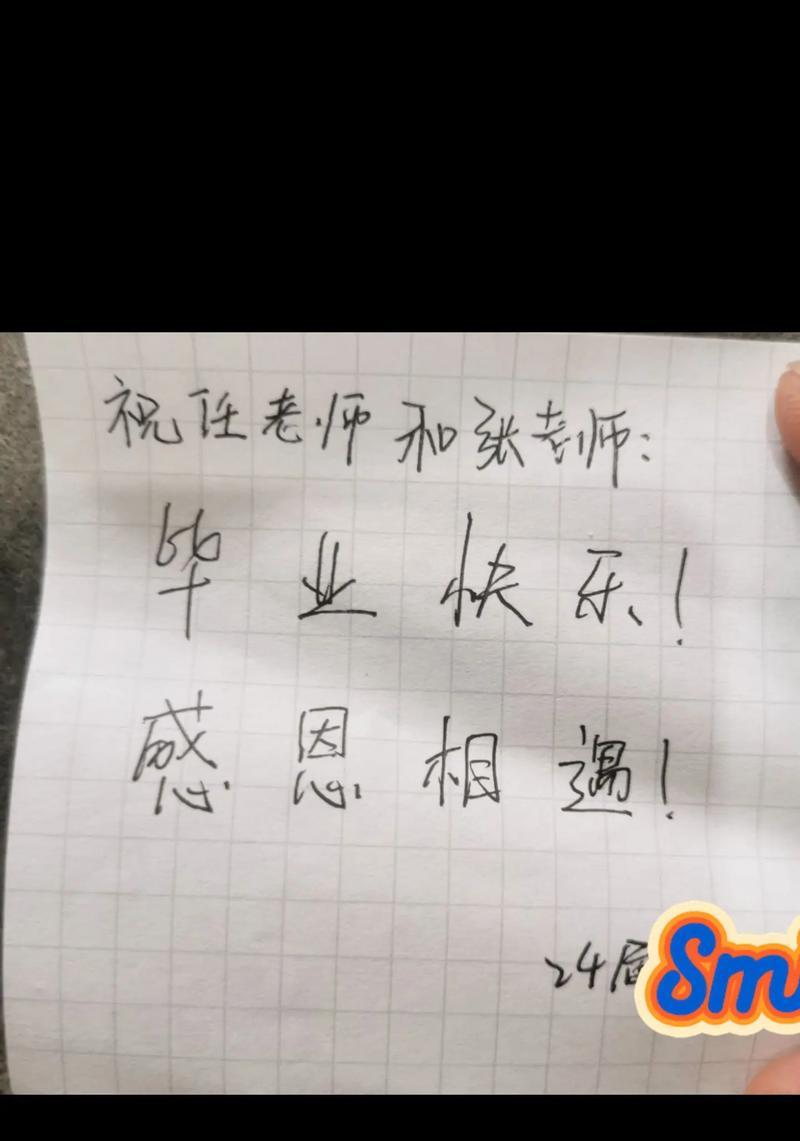 祝任老师和张老师:
毕业快乐!
感恩相遇!
24届
Smi